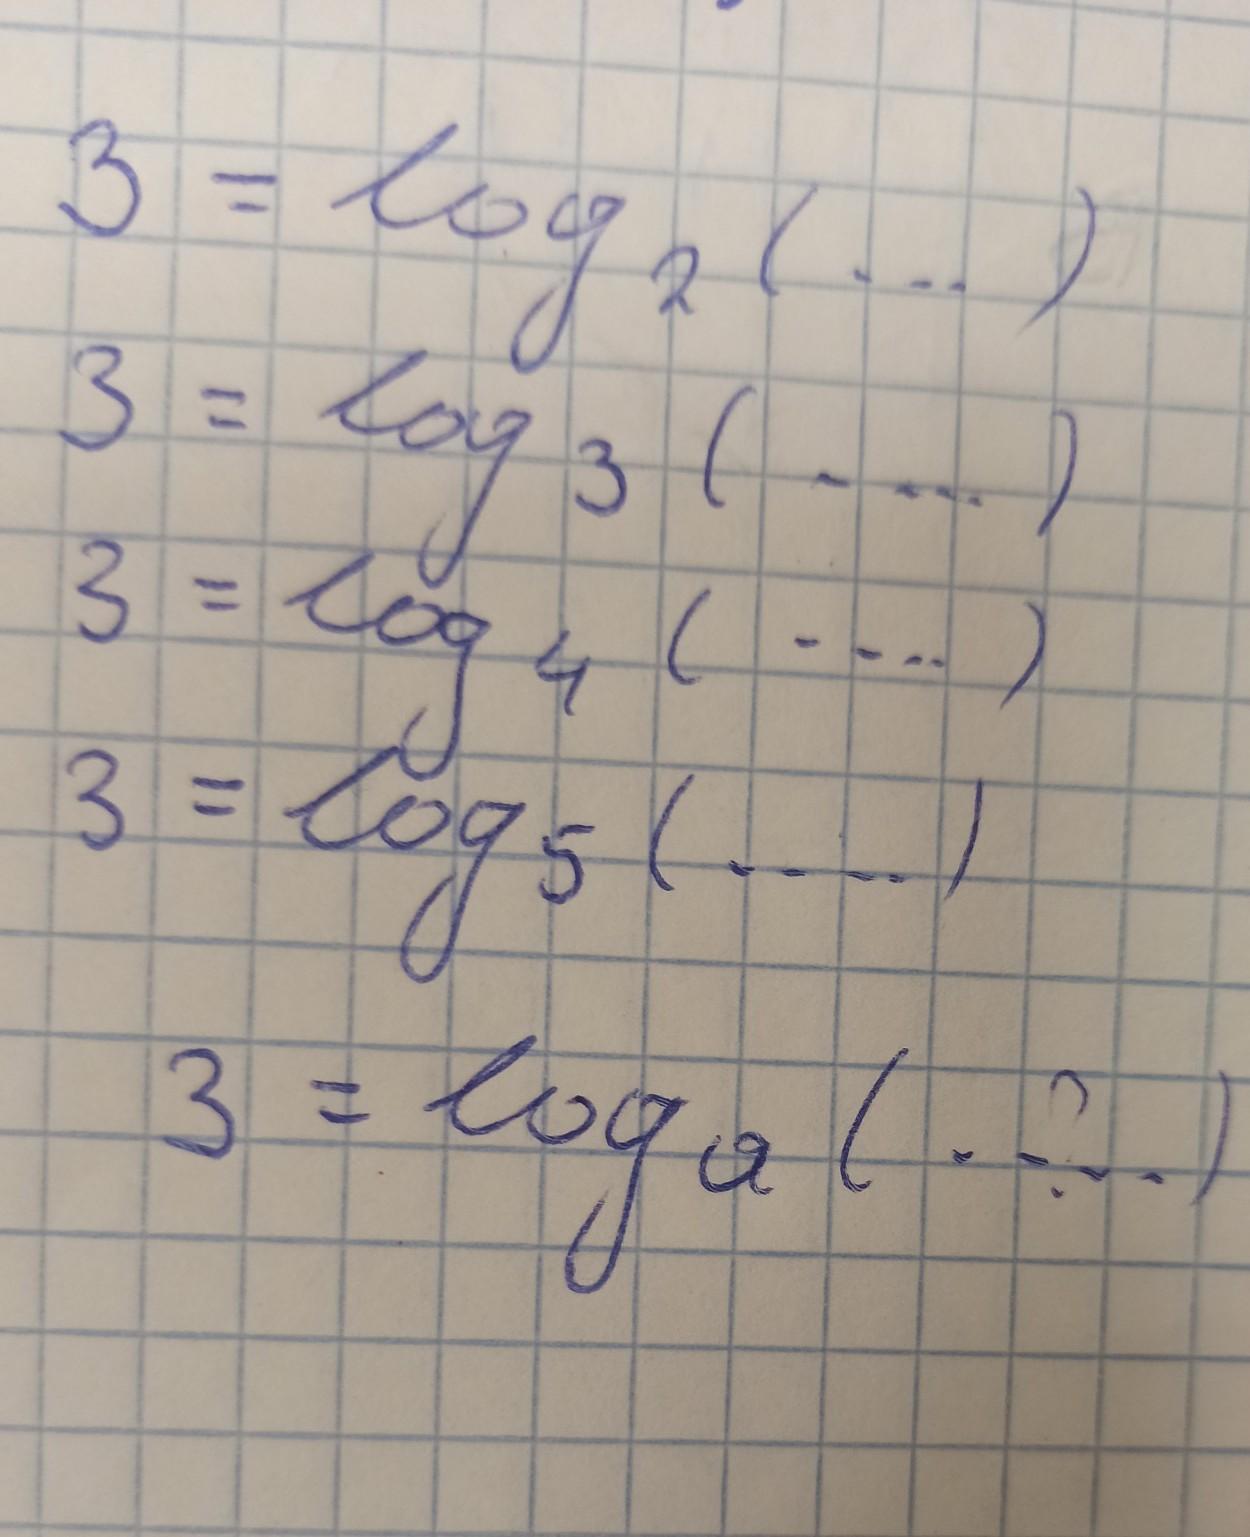 3 = log₂ (. . . .)
3 = log₃ (. . . .)
3 = log₄ (. . . .)
3 = log₅ (. . . .)
3 = logₐ (. . ? . .)